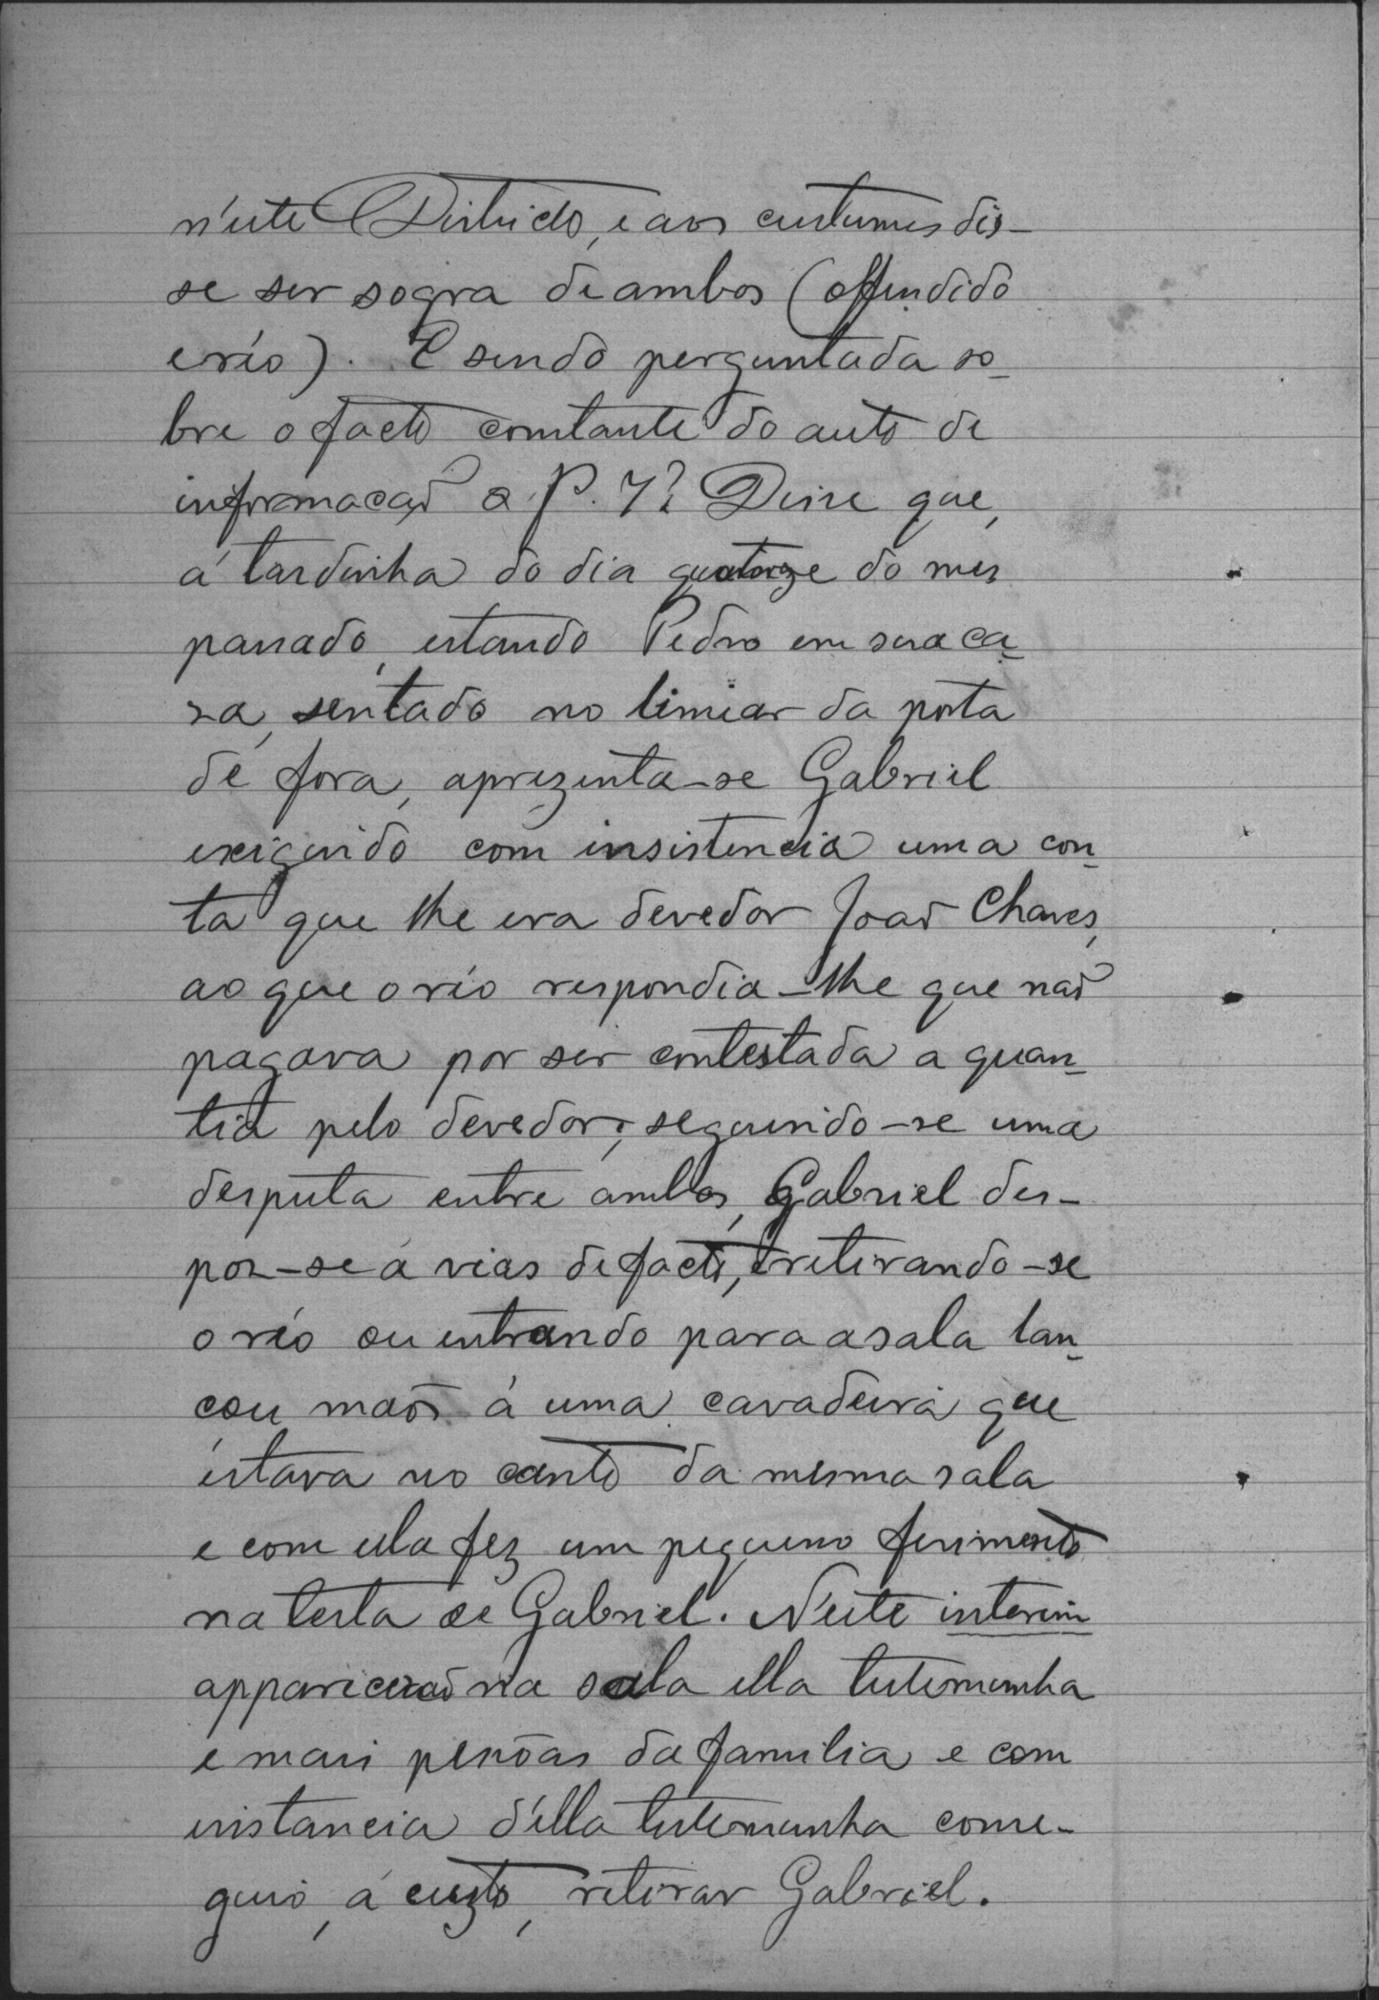 n'este Districto, e aos custumes dis-
se ser sogra de ambos (offendido
e réo). E sendo perguntada so-
bre o facto constante do auto de
informaçaõ a P. 7? Disse que,
á tardinha do dia quatorze do mes
passado, estando Pedro em sua ca-
za, sentado no limiar da porta
de fora, aprezenta-se Gabriel
exigindo com insistencia uma con-
ta que lhe era devedor Joaõ Chaves,
ao que o réo respondia-lhe que naõ
pagava por ser contestada a quan-
tia pelo devedor; seguindo-se uma
desputa entre ambos, Gabriel des-
poz-se á vias de facto, retirando-se
o réo ou entrando para a sala lan-
çou maõs á uma cavadeira que
estava no canto da mesma sala
e com ella fez um pequeno ferimento
na testa de Gabriel. N'este interim
appareceu na sala ella testemunha
e mais pessôas da familia e com
instancia d'ella testemunha conse-
guio, á custo, retirar Gabriel.